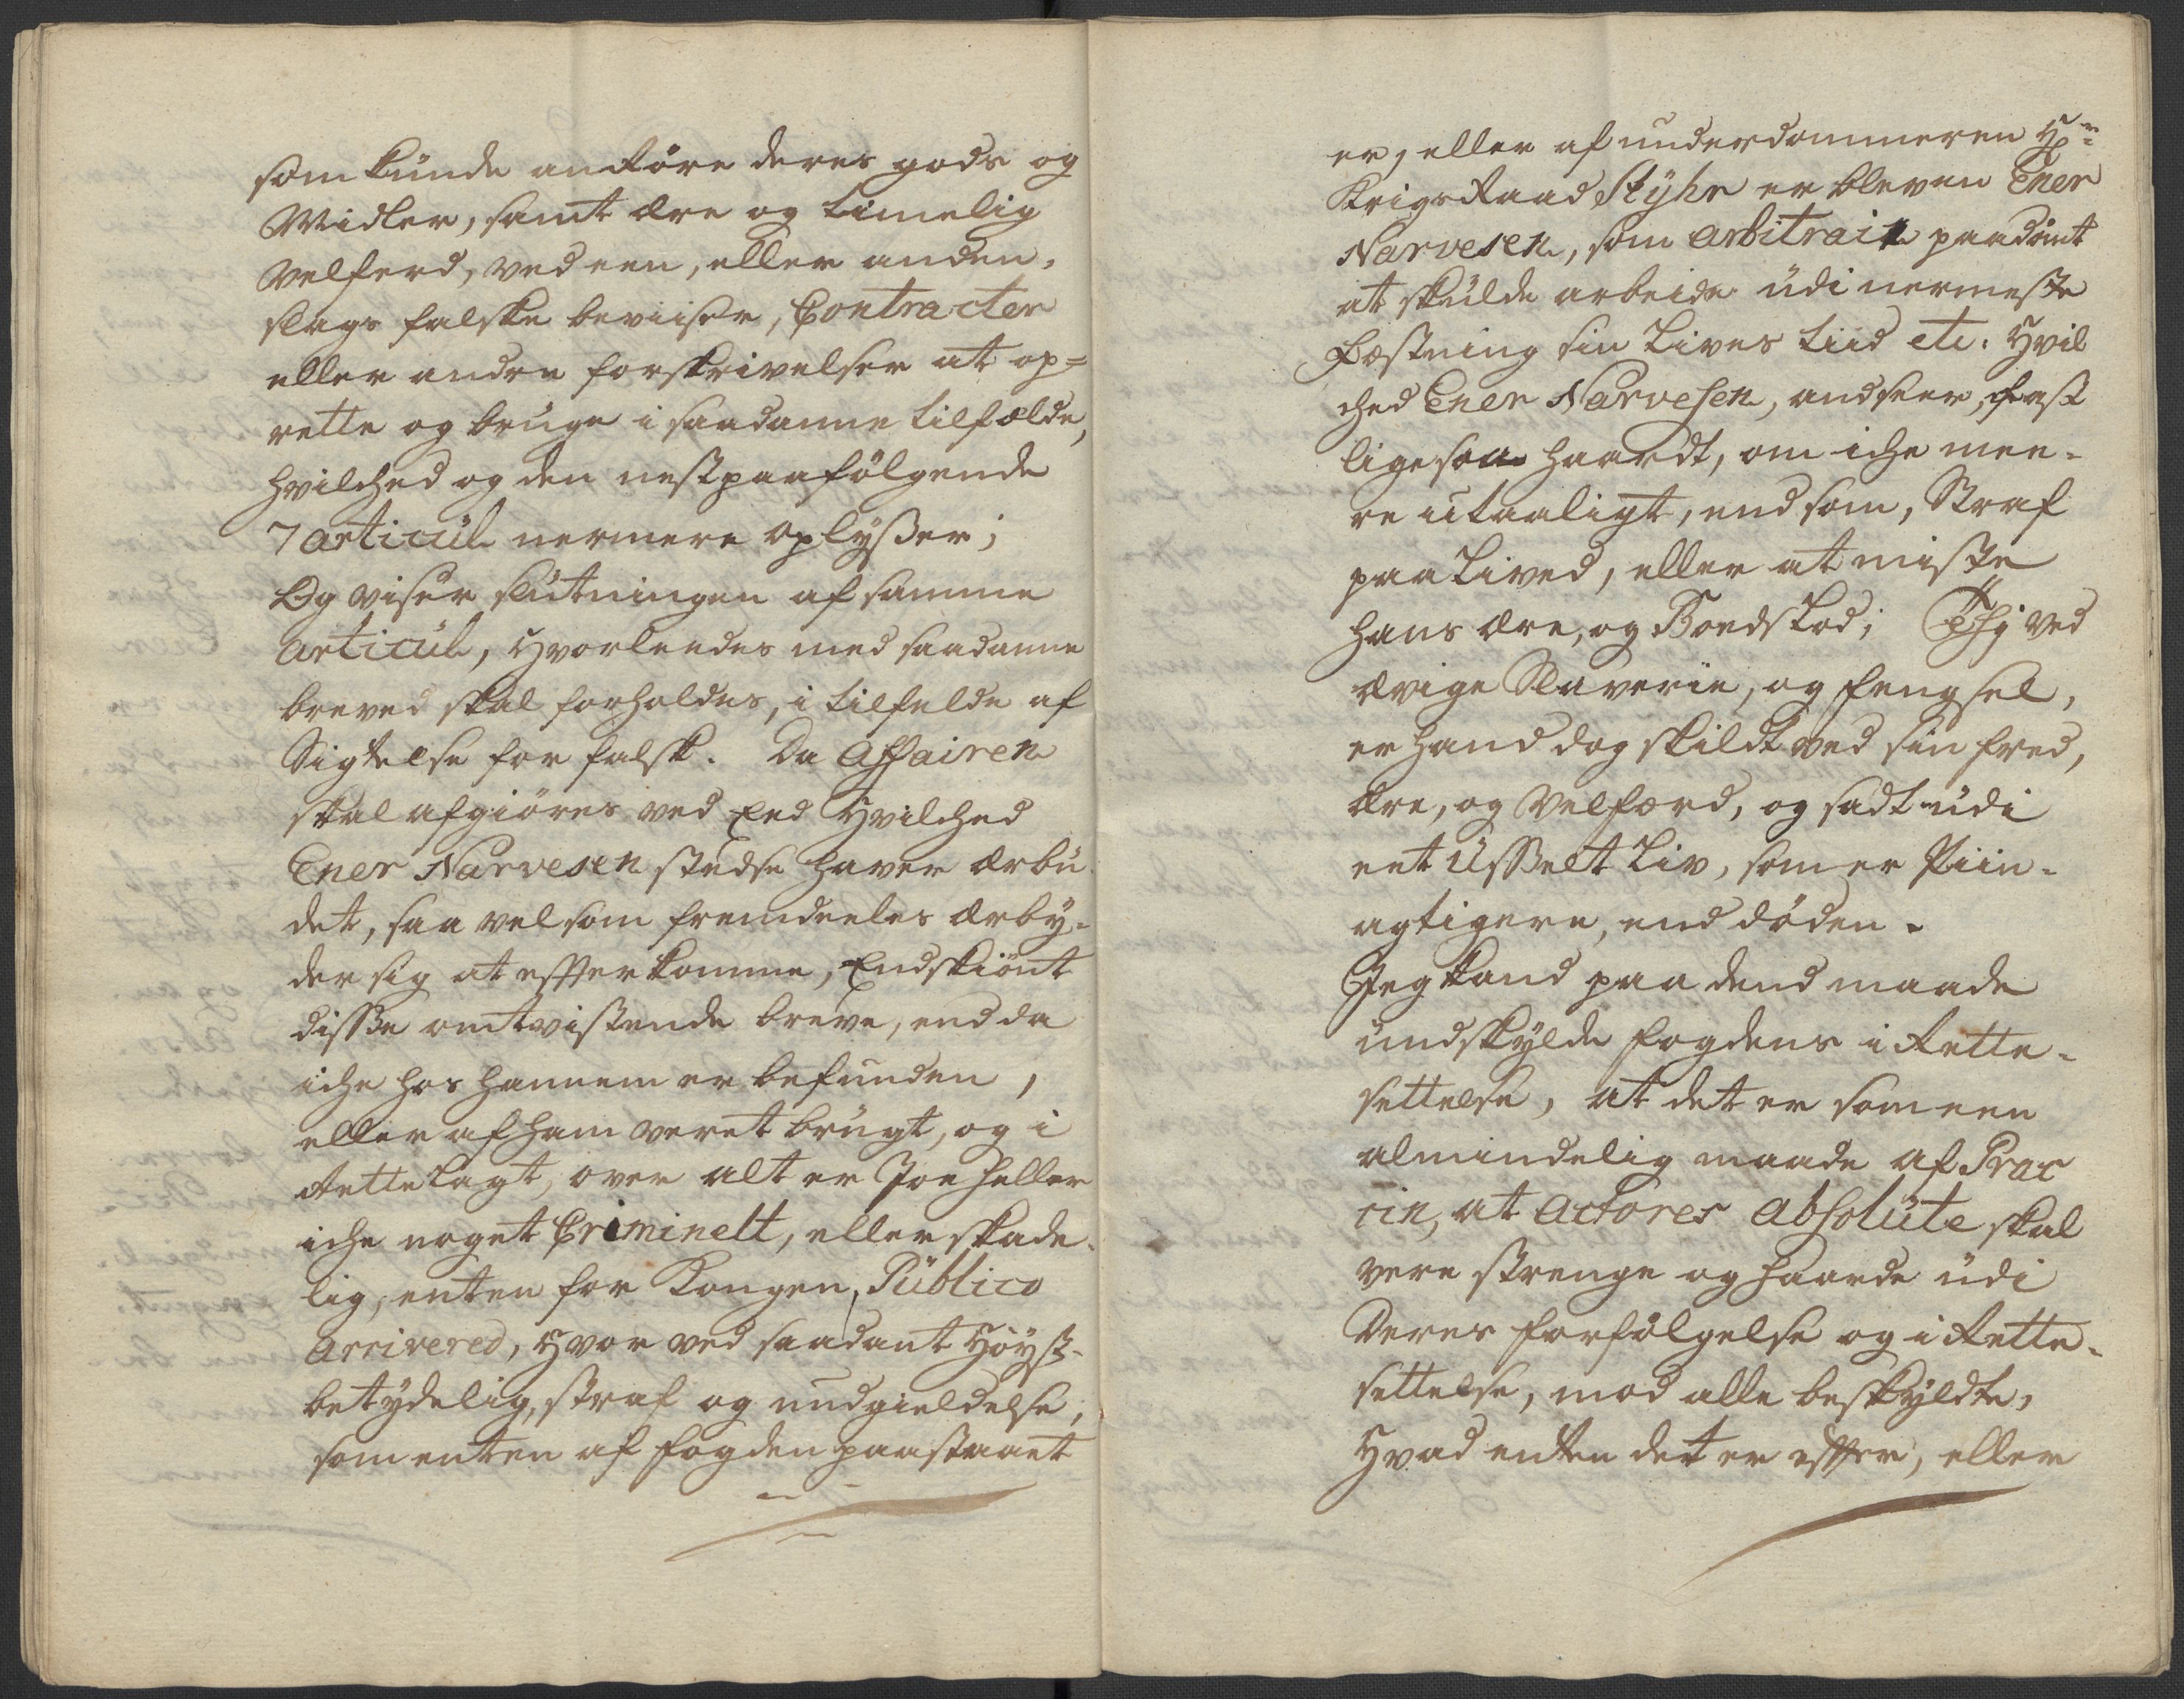 som kunde anröre deres gods og
Midler, samt ære og timelig
Velferd, ved een, eller anden,
slags falske beviiser, Contracter
eller andre forskrivelser at op=
rette og bruge i saadanne tilfælde,
hvilched og den nestpaafölgende
7 articul nermere oplysser;
Og viser slutningen af samme
Articul, hvorleedes med saadanne
breved skal forholdes, i tilfelde af
Sigtelse for falsk. Da Affairen
skal afgiöres ved Eed hvilched
Ener Narvesen stedse haver ærbu
det, saa vel som fremdeeles ærby-
der sig at efterkomme, Endskiönt
disse omtvistende breve, end da
iche hos hannem er befunden,
eller af ham veret brugt, og i
Rette lagt, over alt er Joe heller
iche noget Criminelt, eller skade-
lig, enten for Kongen, Publico
Arrivered, hvor ved saadant höyst-
betydelig, straf og undgieldelse,
som enten af fogden paastaaet
er, eller af underdommeren Hr:
Krigsraad Skyhr er bleven Ener
Narvesen, som arbitrair paadömt
at skulde arbeide udi nermeste
Fæstning sin Lives tiid etc. hvil
ched Ener Narvesen, andseer, fast
ligesaa haardt, om iche mee-
re utaaligt, end som, Straf
paa Lived, eller at miste
hans ære, og Boeds Lod; Thj ved
ævige Slaverie, og fengsel,
er hand dog skildt ved sin fred,
ære, og Velfærd, og sadt udi
eet Usselt Liv, som er Piin-
agtigere, end döden.
Jeg kand paa dend maade
undskylde fogdens i Rette-
settelse, at det er som een
almindelig maade af Prac
cin, at Actores Absolute skal
vere strenge og haarde udi
Deres forfölgelse og i Rette-
settelse, mod alle beskyldte,
hvad enten det er efter, eller